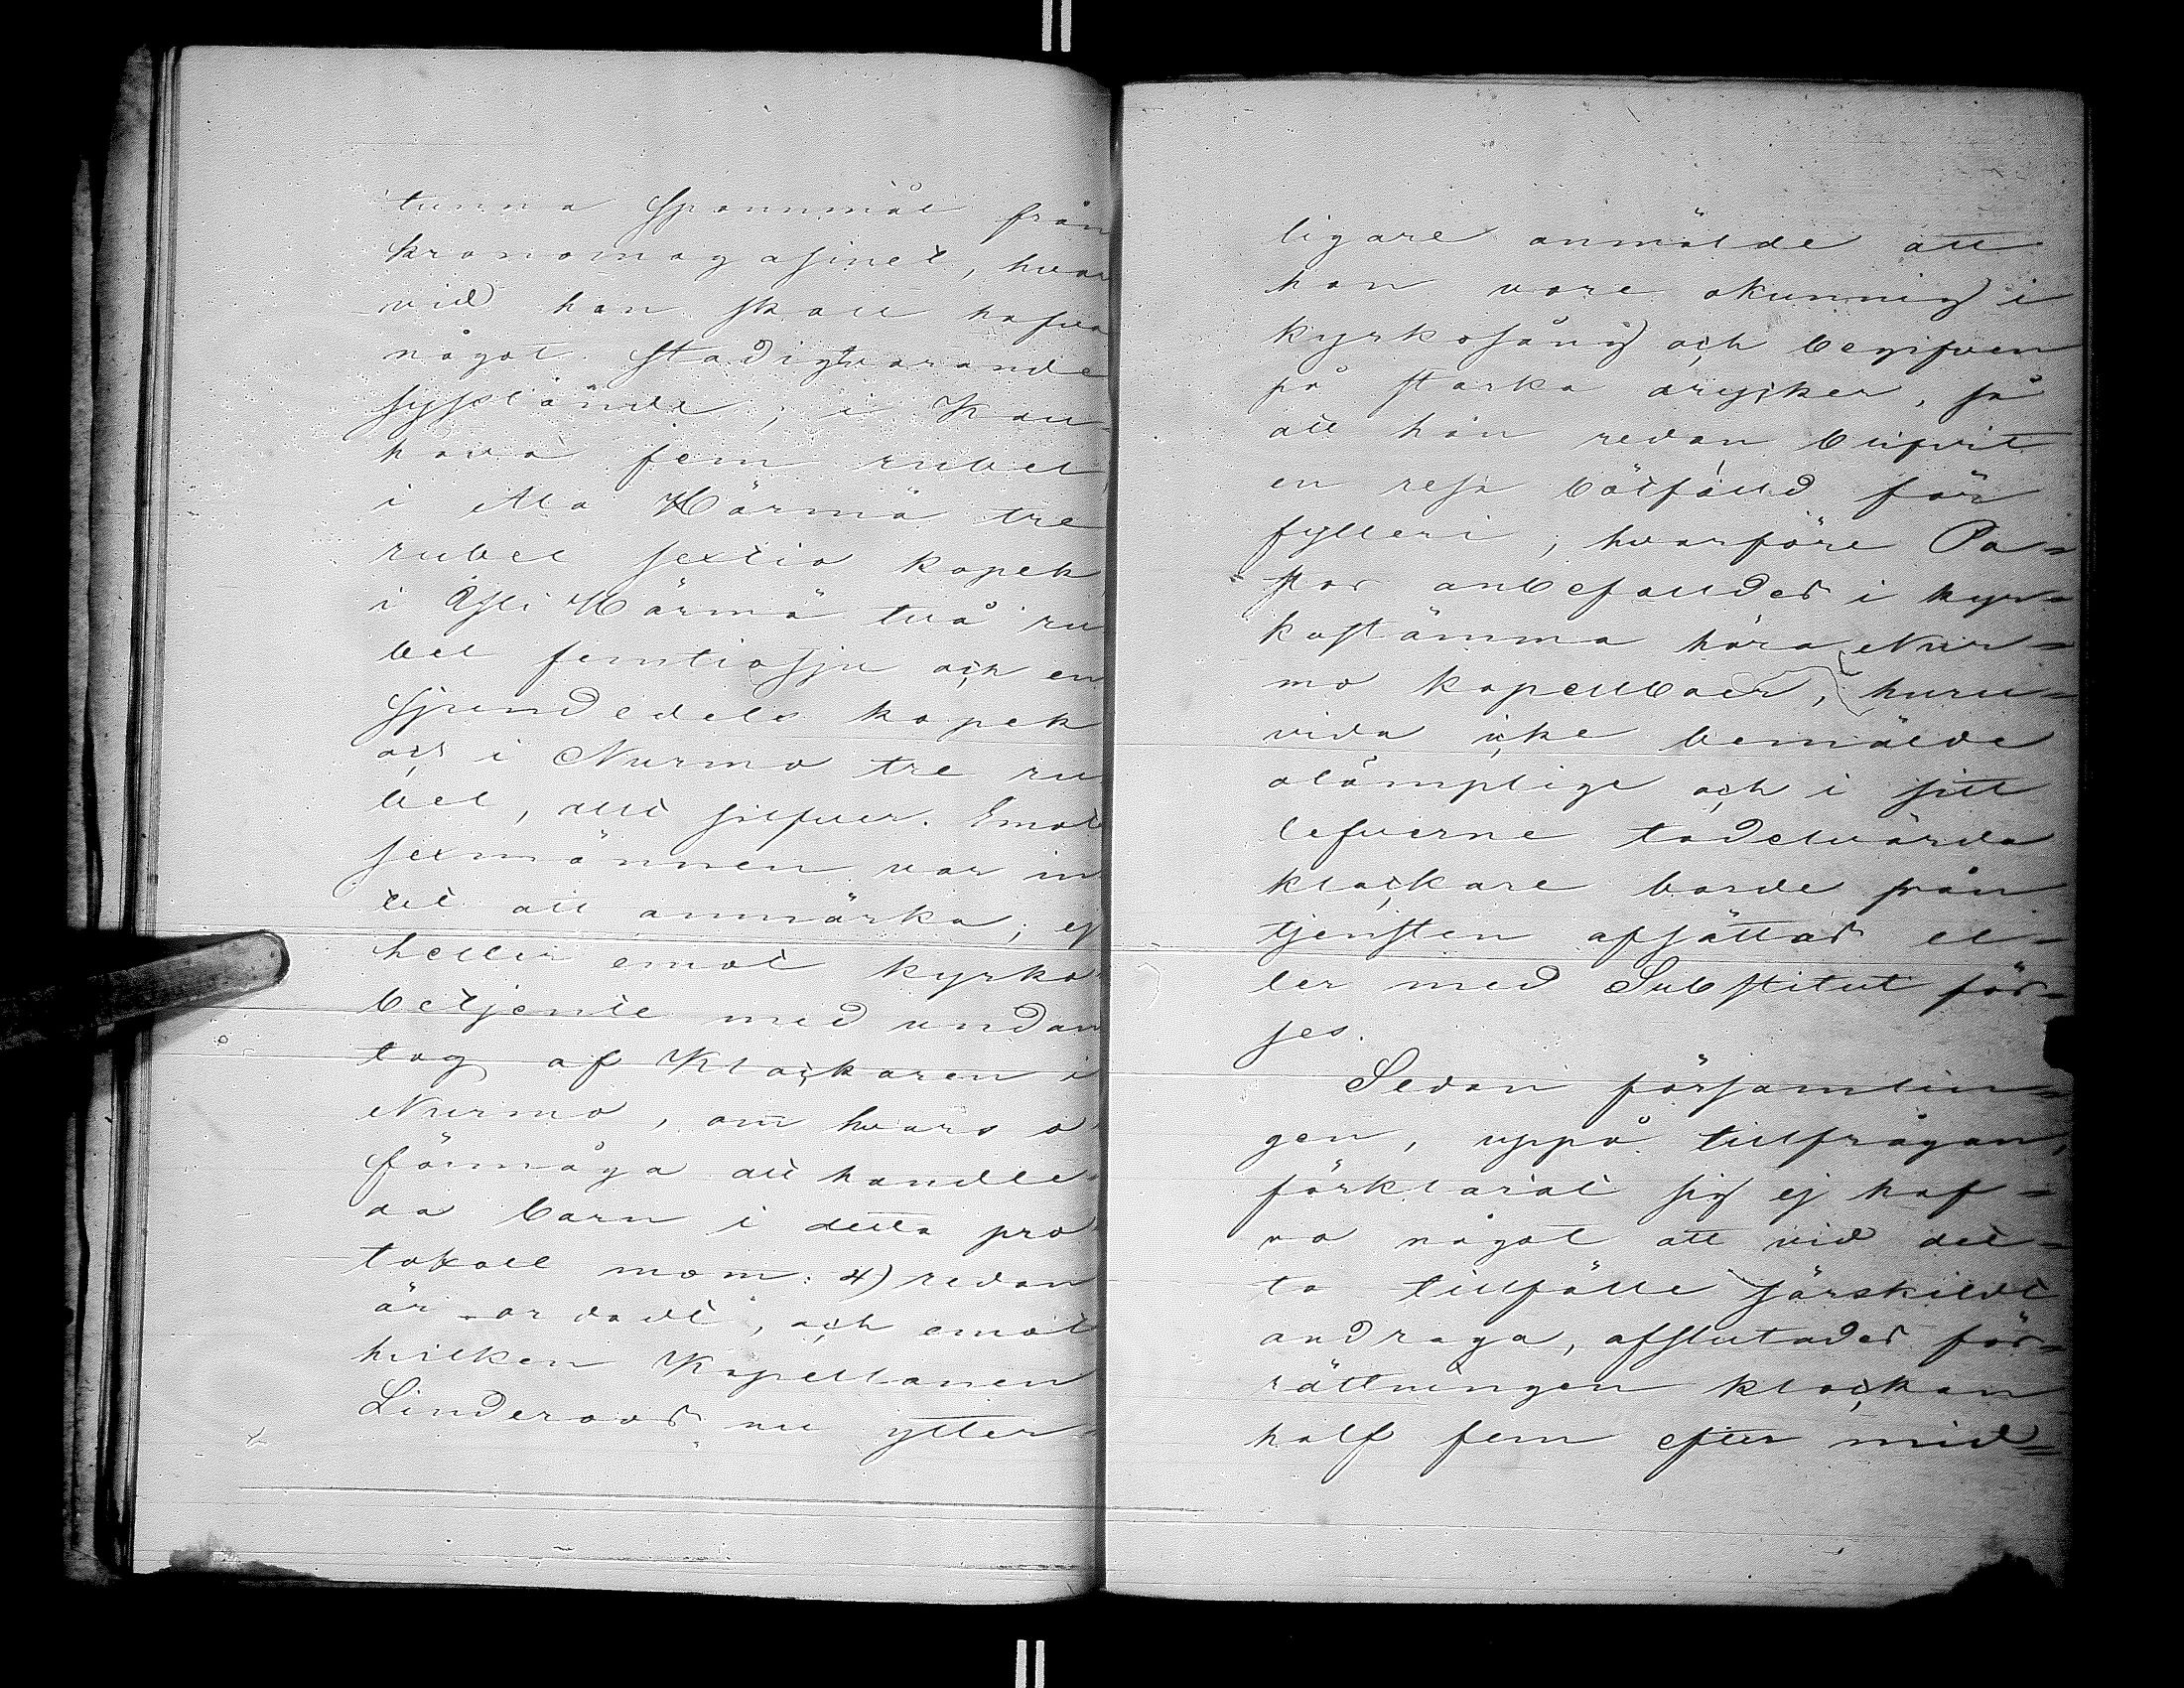 tunna Spannmål från
Kronomagasinet, hvar
vid han skall hafva
något stadigvarande
sysslande; i Kau-
hava fem rubel,
i Ala Härmä tre
rubel sextio kopek,
i Ylli Härmä två ru
bel femtiosju och en
sjundedels kopek
och i Nurmo tre ru
bel, allt silfver. Emot
sexmännen var in
tet att anmärka; ej
heller emot kyrko
betjente med undan
tag af Klockaren i
Nurmo, om hvars o
förmåga att handle
da barn i detta pro
tokoll mom: 4) redan
är ordadt, och emot
hvilken Kapellanen
Linderoos nu ytter-
ligare anmälde att
han vore okunnig i
kyrkosång och begifven
på starka drycker, så
att han redan blifvit
en resa bötfälld för
fylleri; hvarföre Pa-
stor anbefalldes i kyr-
kostämma höra Nur-
mo kapellboer, huru-
vida icke bemälde
olämplige och i sitt
lefverne tadelvärda
klockare borde från
tjensten afsättas el-
ler med Substitut för-
ses.
Sedan församlin-
gen, uppå tillfrågan,
förklarat sig ej haf-
va något att vid det-
ta tillfälle särskildt
andraga, afslutades för-
rättningen klockan
half fem efter mid-